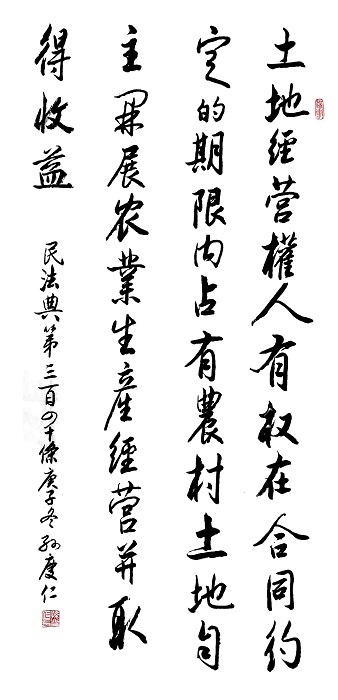 土地經营權人有权在合同约
定的期限内占有農村土地自
主開展农業生産經营并取
得收益
民法典第三百四十條庚子冬孙度仁